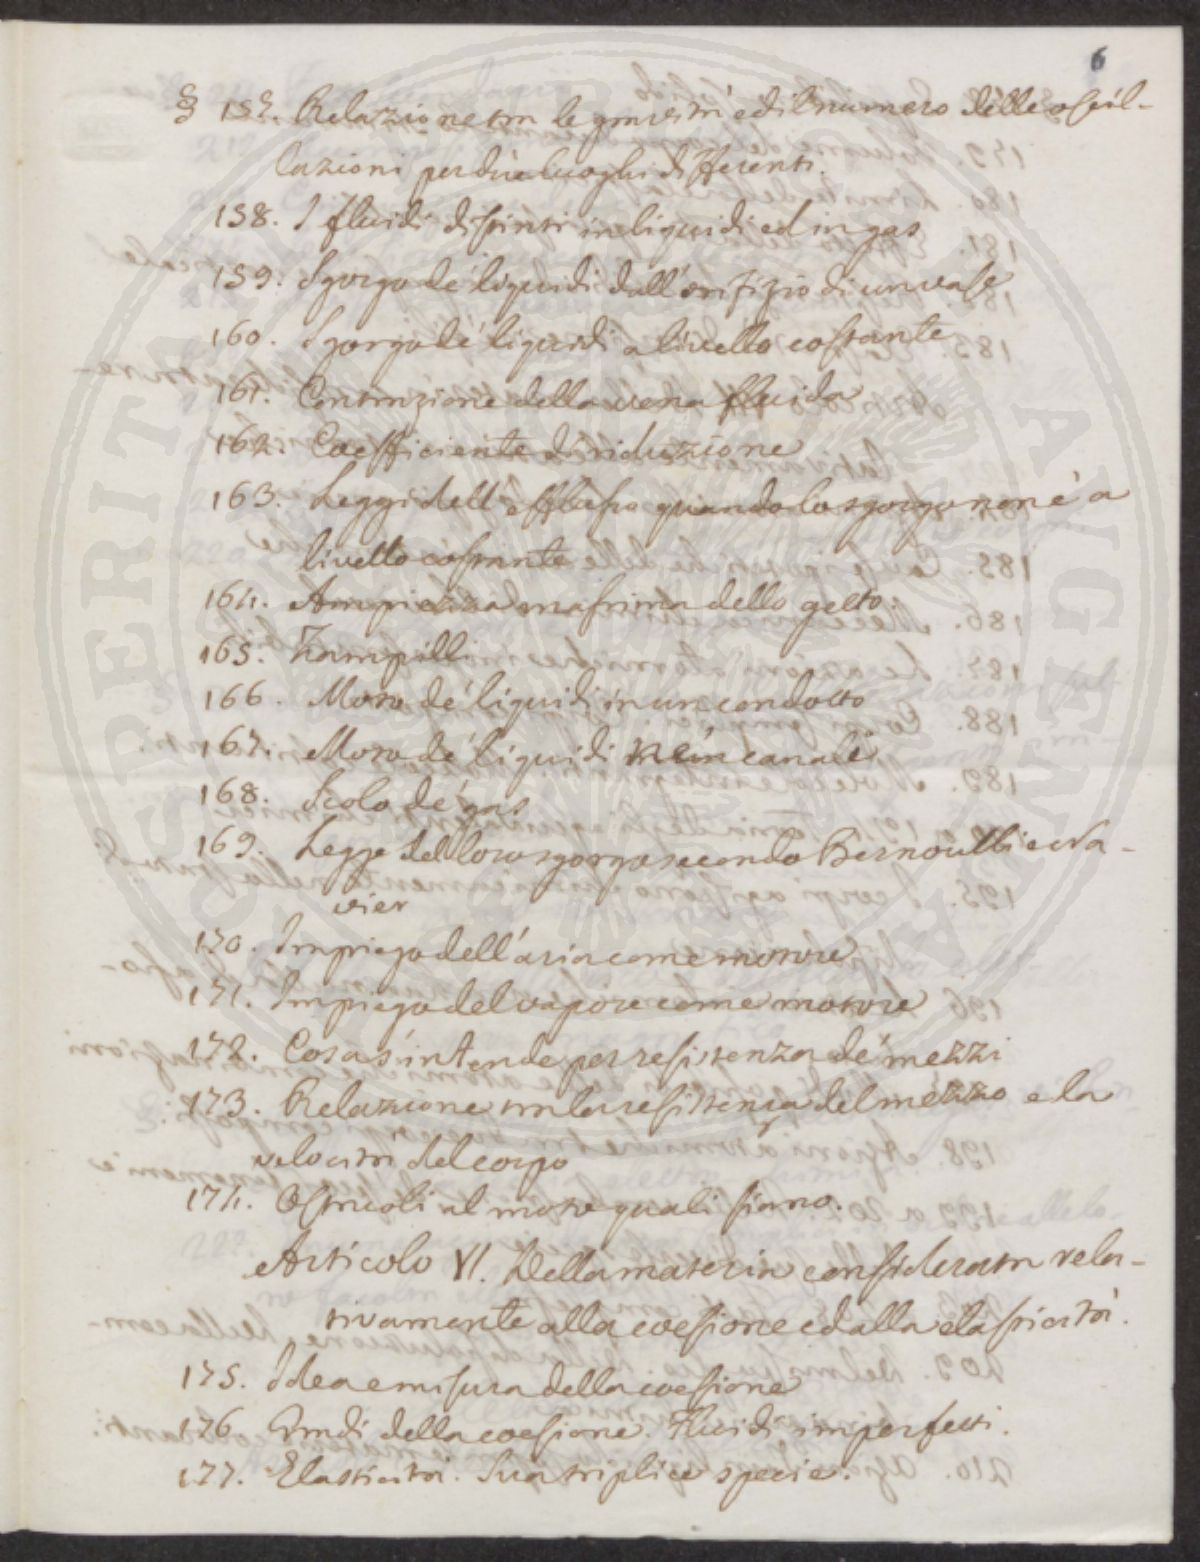 6
§ 157. Relazione tra le gravità ed il numero delle oscil-
lazioni per due luoghi differenti.
158. I fluidi distinti in liquidi ed in gas
159. Sgorgo de' liquidi dall'orifizio di un vase
160. Sgorgo de' liquidi a livello costante
161. Contrazione della vena fluida
162. Coefficiente di riduzione
163. Leggi dell'efflusso quando lo sgorgo non è a
livello costante
164. Ampiezza massima dello getto.
165. Zampilli
166. Moto de' liquidi in un condotto
167. Moto de' liquidi in canale
168. Scolo de' gas
169. Legge del loro sgorgo secondo Bernoulli e Na-
vier
170. Impiego dell'aria come motore
171. Impiego del vapore come motore
172. Cosa s'intende per resistenza de' mezzi
173. Relazione tra la resistenza del mezzo e la
velocità del corpo
174. Ostacoli al moto quali siano.
Articolo VI. Della materia considerata rela-
tivamente alla coesione ed alla elasticità.
175. Idea e misura della coesione
176. Gradi della coesione. Fluidi imperfetti.
177. Elasticità. Sua triplice specie.